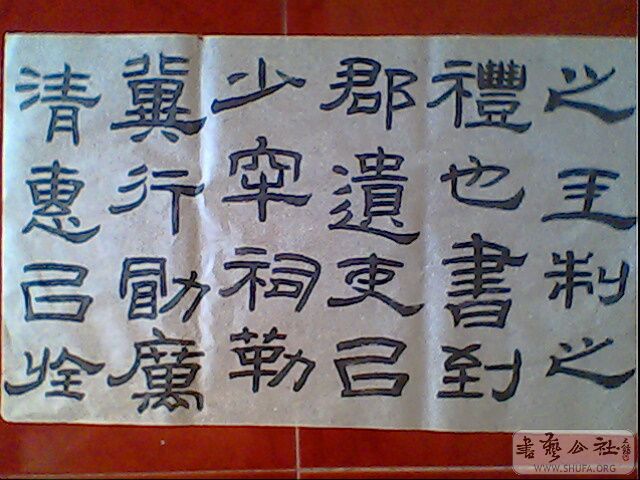 之王制之
禮也書到
郡遺吏己
少窂祠勒
冀行勖厲
清惠己
書藝公社
WWW.SHUFA.ORG